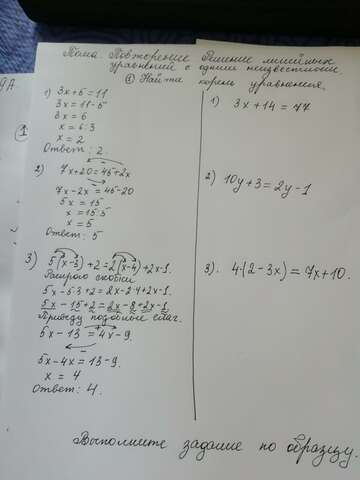 Тема. Повторение Решение линейных
уравнений с одним неизвестным.
① Найти корень уравнения.
9А
①
1) 3x+5=11
3x=11-5
3x=6
x=6:3
x=2
Ответ: 2.
2) 7x+20=45+2x
7x-2x=45-20
5x=15
x=15:5
x=5
Ответ: 5
3) 5(x-3)+2=2(x-4)+2x-1.
Раскрою скобки
5x-5·3+2=2x-2·4+2x-1.
5x-15+2=2x-8+2x-1
Приведу подобные слаг.
5x-13=4x-9.
5x-4x=13-9.
x=4
Ответ: 4.
1) 3x+14=77
2) 10y+3=2y-1
3). 4·(2-3x)=7x+10.
Выполните задание по образцу.